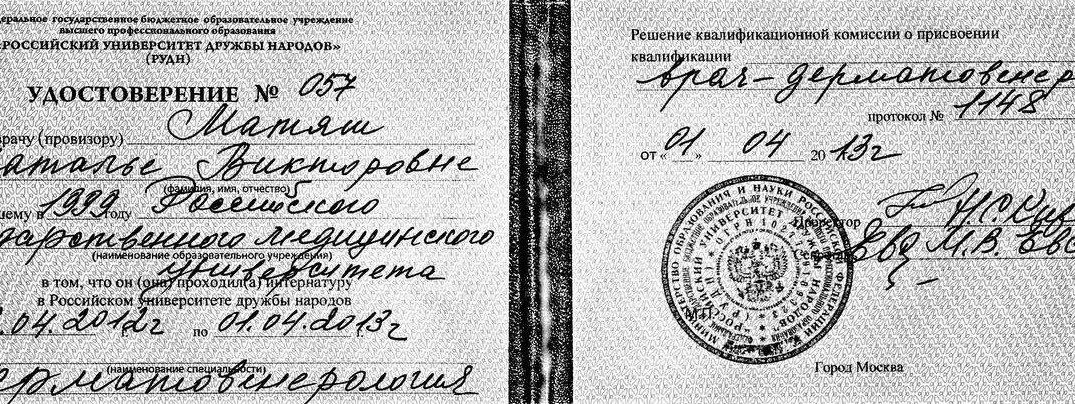 деральное государственное бюджетное образовательное учреждение
высшего профессионального образования
«РОССИЙСКИЙ УНИВЕРСИТЕТ ДРУЖБЫ НАРОДОВ»
(РУДН)
УДОСТОВЕРЕНИЕ № 057
врачу (провизору) Матяш
аталье Викторовне
(фамилия, имя, отчество)
шему в 1999 году Российского
дарственного медицинского
(наименование образовательного учреждения)
университета
в том, что он (она) проходил(а) интернатуру
в Российском университете дружбы народов
.04.2012г по 01.04.2013г
(наименование специальности)
ерматовенерология
Решение квалификационной комиссии о присвоении
квалификации
врач-дерматовенер
протокол № 1148
от «01» 04 2013г
Проректор Н.С. 
М.В. Евс
М.П.
Город Москва